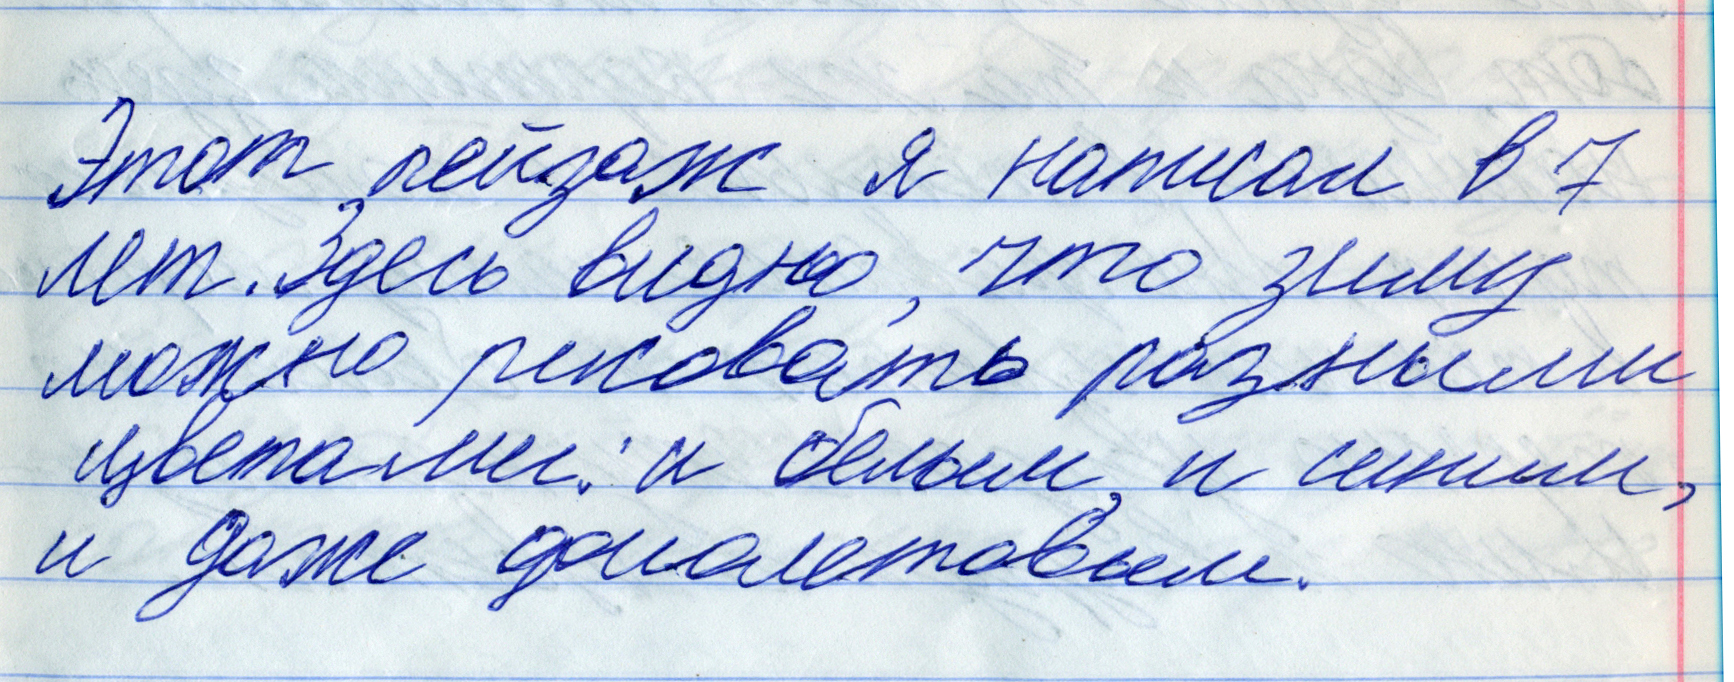 Этот пейзаж я написал в 7
лет. Здесь видно, что зиму
можно рисовать разными
цветами: и белым, и синим,
и даже фиолетовым.